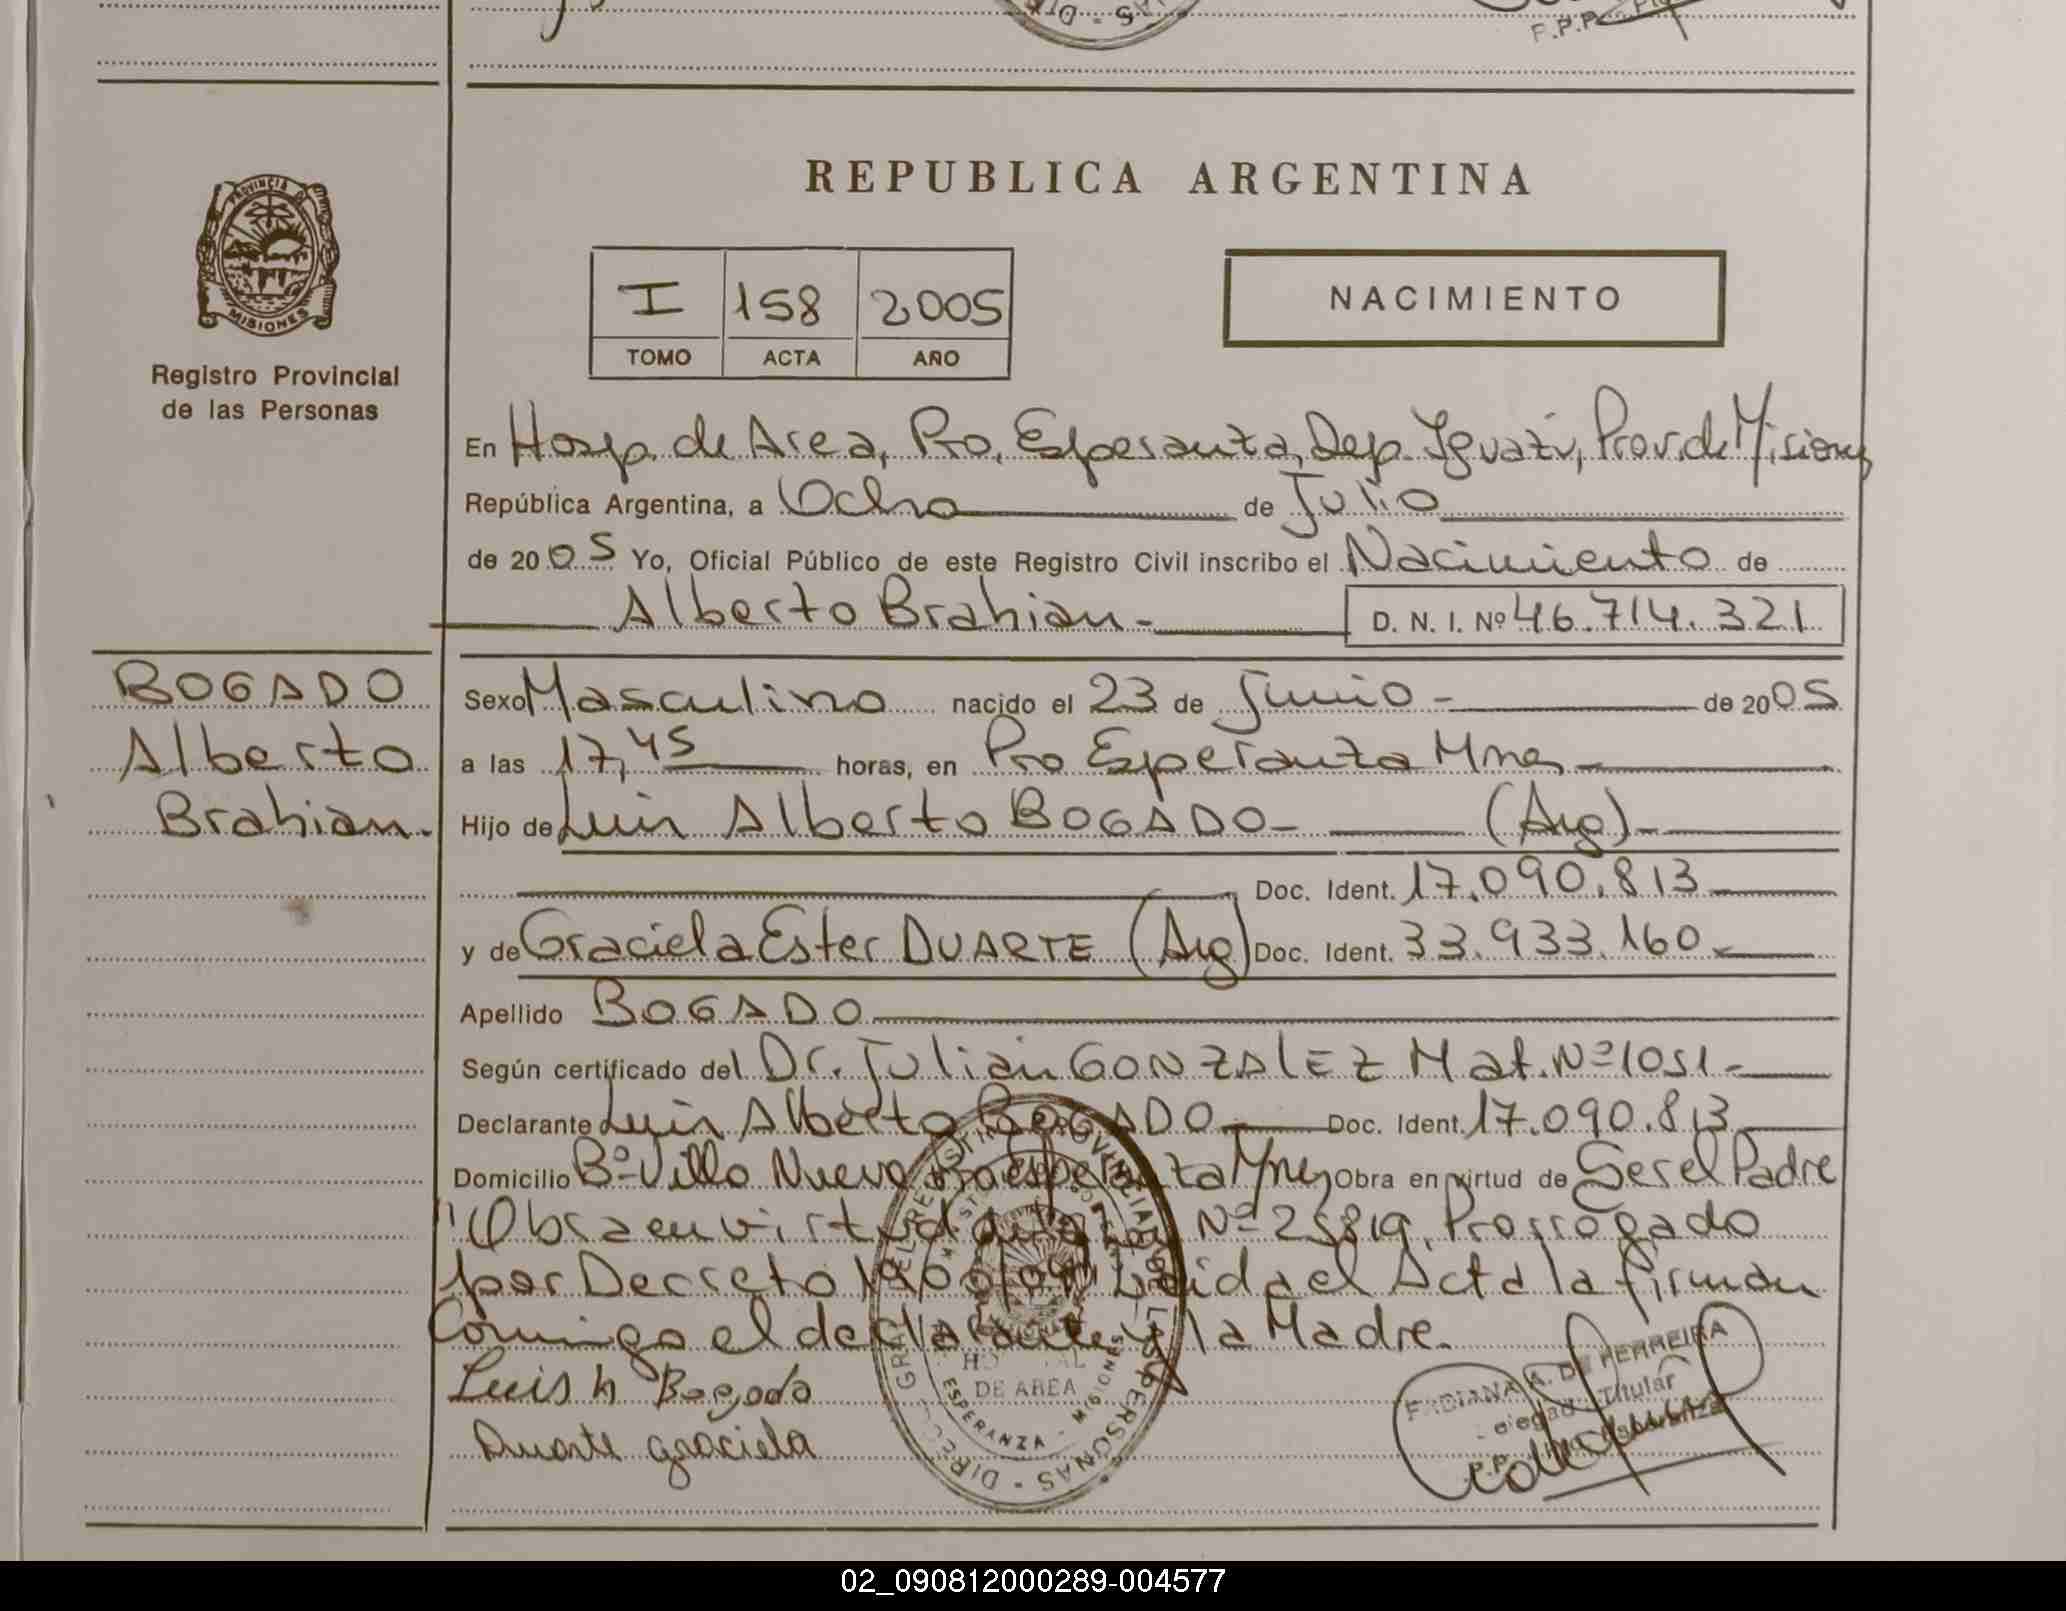 F.P.P.
REPUBLICA ARGENTINA
PROVINCIA DE
MISIONES
Registro Provincial
de las Personas
I 158 2005
TOMO ACTA AÑO
NACIMIENTO
En Hosp. de Area, Pto. Esperanza, Dep. Iguazú, Prov. de Misiones
República Argentina, a Ocho de Julio
de 2005 Yo, Oficial Público de este Registro Civil inscribo el Nacimiento de
Alberto Brahian.- D. N. I. Nº 46.714.321
BOGADO
Alberto
Brahian.
Sexo Masculino nacido el 23 de Junio - de 2005
a las 17,45 horas, en Pto Esperanza Mnes
Hijo de Luis Alberto BOGADO - (Arg)-
Doc. Ident. 17.090.813
y de Graciela Ester DUARTE (Arg) Doc. Ident. 33.933.160.
Apellido BOGADO
Según certificado del Dr. Julián GONZALEZ Mat. Nº 1051-
Declarante Luis Alberto BOGADO Doc. Ident. 17.090.813
Domicilio Bº Villa Nueva Pto Esperanza Mnes Obra en virtud de Ser el Padre
"Obra en virtud de la Ley Nº 25819, Prorrogado
por Decreto Leída el Acta la firman
Conmigo el declarante y la Madre.
Luis A Bogado
Duarte graciela
HOSPITAL
DE AREA
ESPERANZA - MISIONES
FABIANA A. DE FERREIRA
Delegada Titular
02_090812000289-004577